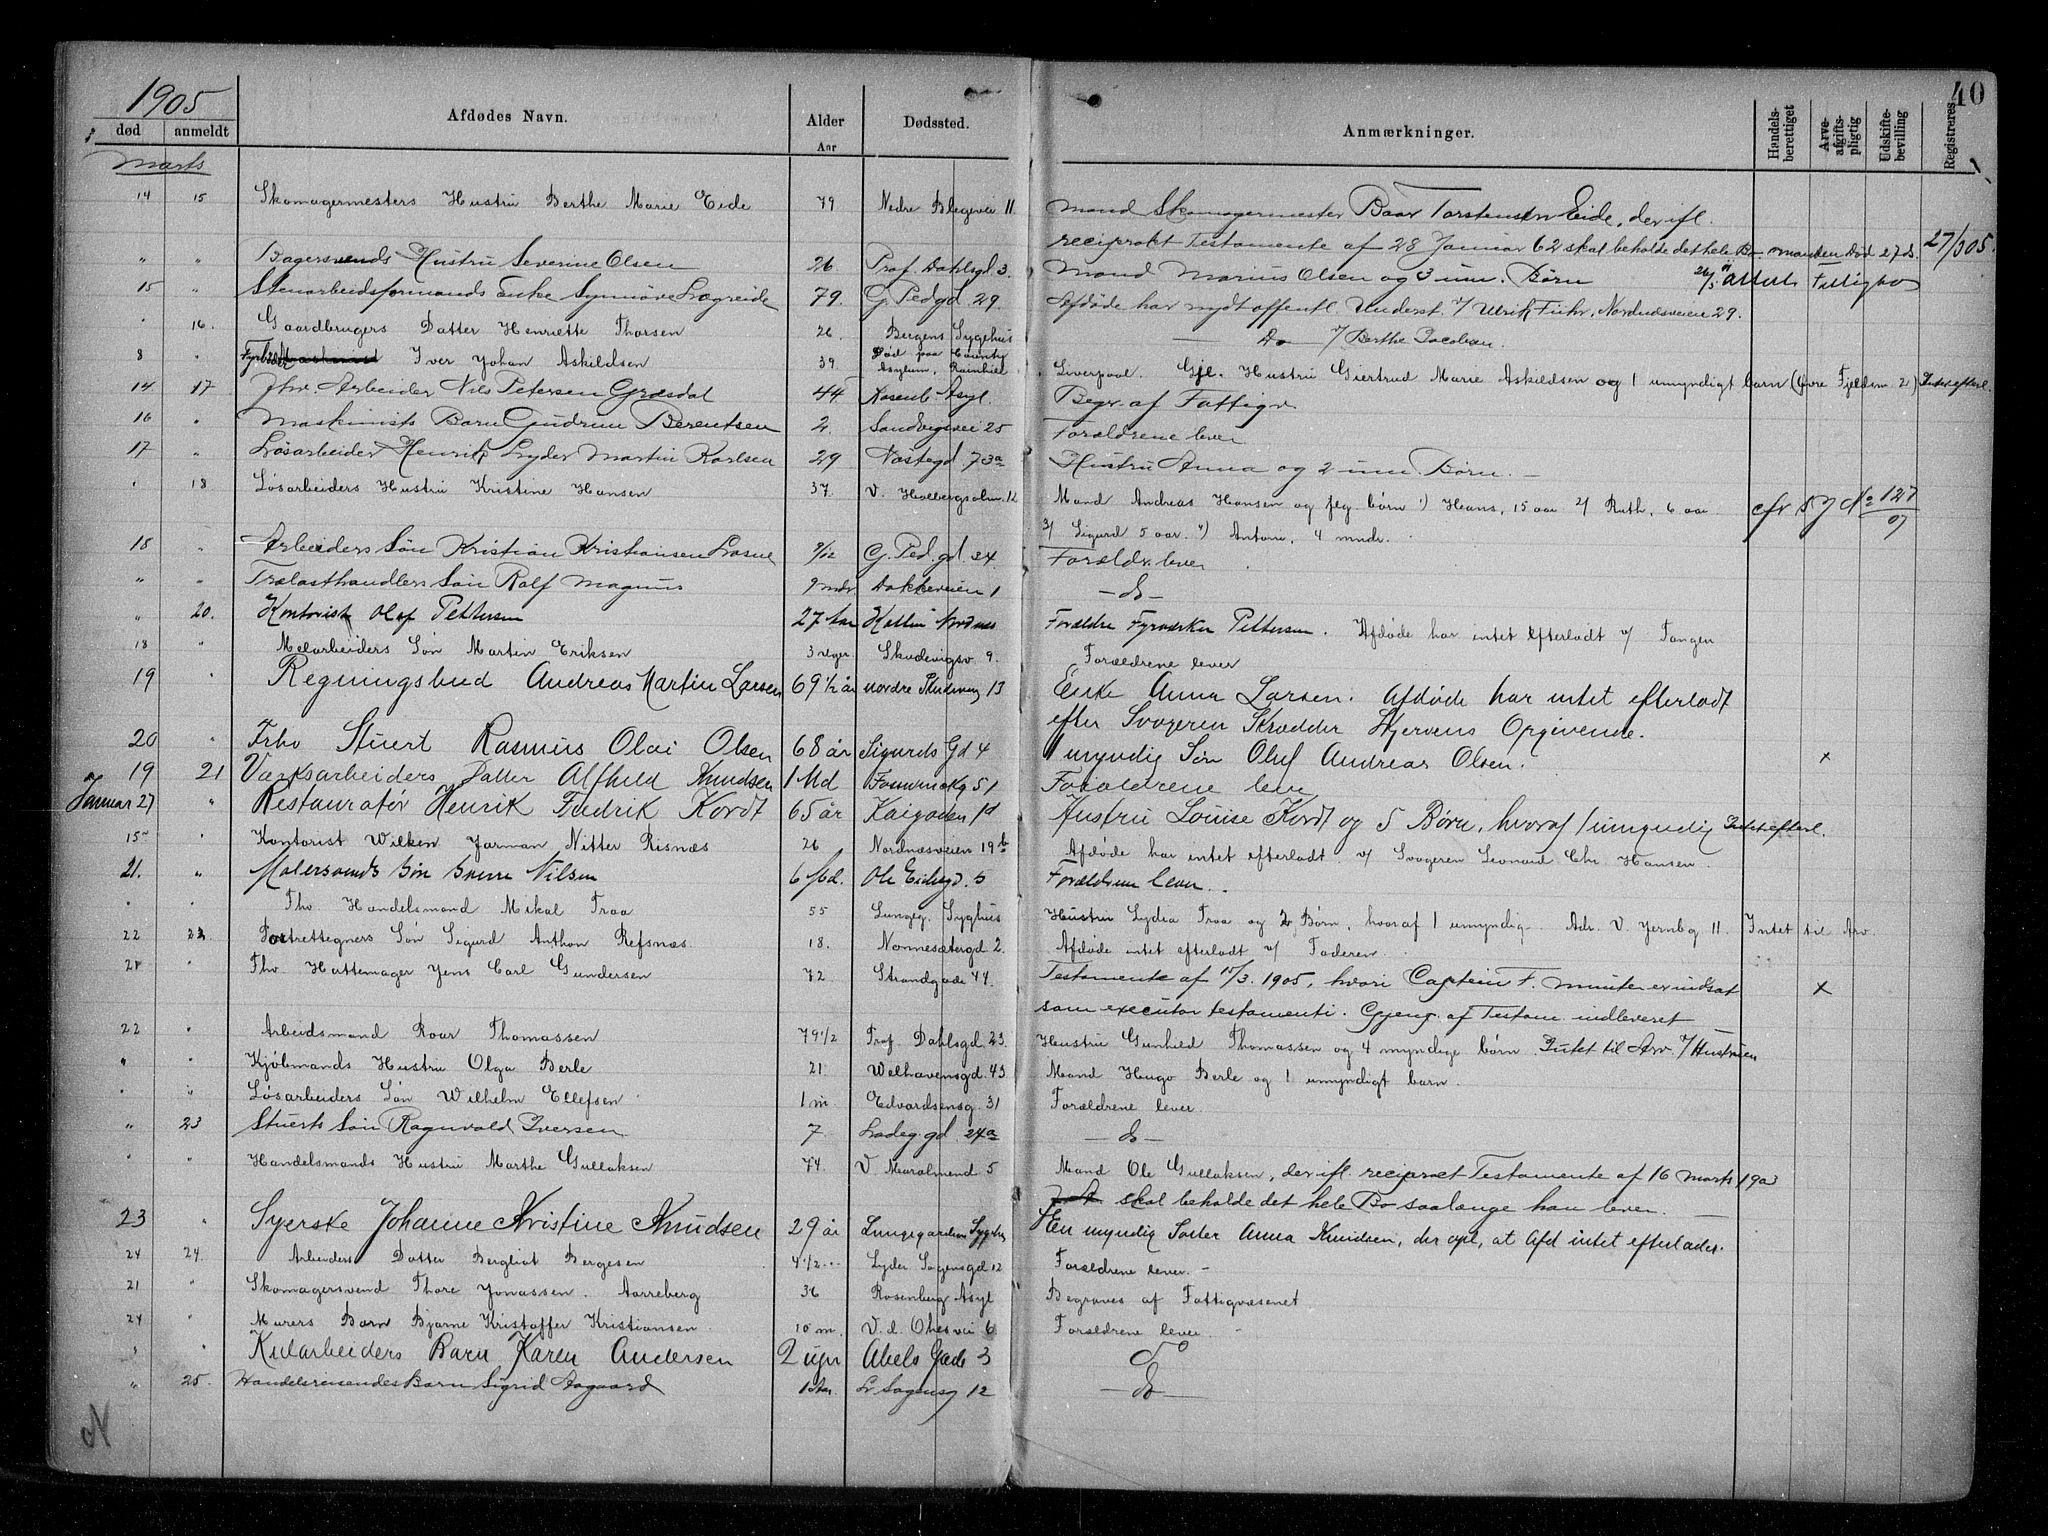 40
1905
død anmeldt Afdødes Navn. Alder Aar Dødssted. Anmærkninger. Handels-berettiget Arve-afgifts-pligtig Udskifte-bevilling Registreres
Marts
14 15 Skomagermesters Hustru Berthe Marie Eide 79 Nedre Blegevei 11. Mand Skomagermester Baar Torstensen Eide, der ifl.
reciprokt Testamente af 28 Januar 62 skal beholde det hele Bo. Manden død 27 ds. 27/3 05.
" " Bagersvends Hustru Severine Olsen 26 Prof. Dahlsgd 3. Mand Marius Olsen og 3 um. Børn
15 " Stenarbeidsformands Enke Synnøve Lægreide 79. G. Ped gd 29. Afdøde har nydt offentl. Underst. v/ Ulrik Fuhr, Nordnæsveien 29.
" 16. Gaardbrugers Datter Henriette Thorsen 26 Bergens Sygehus — Do — v/ Berthe Jacobsen.
8 " Iver Johan Askildsen 39 Død paa County Asylum, Rainhill Liverpool. Gjl. Hustru Giertrud Marie Askildsen og 1 umyndigt barn (Øvre Fjeldsm. 2) Intet efterl.
14 17 Fhv. Arbeider Nils Petersen Græsdal 44 Rosenb. Asyl. Begr. af Fattigv.
16 " Maskinists Barn Gudrun Berentsen 2. Sandvigsvei 25 Forældrene lever
17 " Løsarbeider Henrik Lyder Martin Karlsen 29 Nøstegd 73a Hustru Anna og 2 um. Børn. —
" 18 Løsarbeiders Hustru Kristine Hansen 37. V. Holbergsalm. 12 Mand Andreas Hansen og flg. børn 1) Hans, 15 aar 2/ Ruth, 6 aar
3/ Sigurd 5 aar. 4) Antoni, 4 mndr. cfr S J No 127/07
18 " Arbeiders Søn Kristian Kristiansen Losne 9/12 G. Ped. gd 24. Forældr. lever
" " Trælasthandlers Søn Rolf Magnus 9 mdr Dokkeveien 1 — do —
" 20. Kontorist Olaf Pettersen 27 Aar Kallen Nordnes Forældre Fyrværker Pettersen. Afdøde har intet efterladt v/ Tangen
18 " Melarbeiders Søn Martin Eriksen 3 uger. Skudevigsv 9. Forældrene lever
19 " Regningsbud Andreas Martin Larsen 69 1/2 år Nordre Skudevig 13 Enke Anna Larsen. Afdøde har intet efterladt
efter Svogeren Skrædder Hjervens Opgivende.
20 " Fhv Stuert Rasmus Olai Olsen 68 år Sigurds Gd 4 1 myndig Søn Oluf Andreas Olsen. x
19 21 Værksarbeiders Datter Alfhild Knudsen 1 Md 51 Forældrene lever
Januar 27 " Restauratør Henrik Fredrik Kordt 65 år Kaigaden 1d Hustru Louise Kordt og 5 Børn, hvoraf 1 umyndig Intet efterl.
15 " Kontorist Wilken Jarman Nitter Risnæs 26 Nordnæsveien 19b Afdøde har intet efterladt v/ Svogeren Leonard Chr. Hansen.
21. " Malersvends Søn Sverre Nilsen 6 Md. Ole Eidesgd. 5 Forældrene lever.
" " Fhv Handelsmand Mikal Traa 55 Lungeg. Syghus Hustru Lydia Traa og 2 Børn, hvoraf 1 umyndig. Adr. V Jernbg 11. Intet til Arv.
22 22 Portrettegners Søn Sigurd Anthon Refsnæs 18. Nonnesætergd 2. Afdøde intet efterladt v/ Faderen.
21 " Fhv. Hattemager Jens Carl Gundersen 72 Strandgade 44. Testamente af 15/3. 1905, hvori Captein F. Munster er indsat x
som executor testamenti. Gjeng. af Testam. indleveret
22 " Arbeidsmand Roar Thomassen 79 1/2 Prof. Dahlsgd. 23. Hustru Gunhild Thomassen og 4 myndige børn. Intet til Arv v/ Hustruen
" " Kjøbmands Hustru Olga Berle 21 Welhavensgd. 43 Mand Hugo Berle og 1 umyndigt barn.
" " Løsarbeiders Søn Wilhelm Ellefsen 1 m Edvardsensg. 31 Forældrene lever.
" 23 Stuerts Søn Ragnvald Iversen 7. Ladeg. gd 24a — do —
" " Handelsmands Hustru Marthe Gullaksen 74 V. Muralmend 5 Mand Ole Gullaksen, der ifl. reciproct Testamente af 16 Marts 1903
skal beholde det hele Bo saalænge han lever.
23 " Syerske Johanne Kristine Knudsen 29 år Lungegardens Sygehs En myndig Søster Anna Knudsen, der opl., at Afd intet efterlader.
24 24. Arbeiders Datter Bergliot Bergesen 4 1/2 Lyder Sagensgd 12 Forældrene lever. —
21 " Skomagersvend Thore Jonassen Aarreberg 36 Rosenberg Asyl Begraves af Fattigvæsenet
24 " Murers Barn Bjarne Kristoffer Kristiansen 10 m. V. d. Ohesvei 6 Forældrene lever. —
" " Kularbeiders Barn Karen Andersen 2 uger Abels Gade 3 do
" 25. Handelsreisendes Barn Sigrid Aagaard 1 Aar. L. Sagensg 12 — do —
N